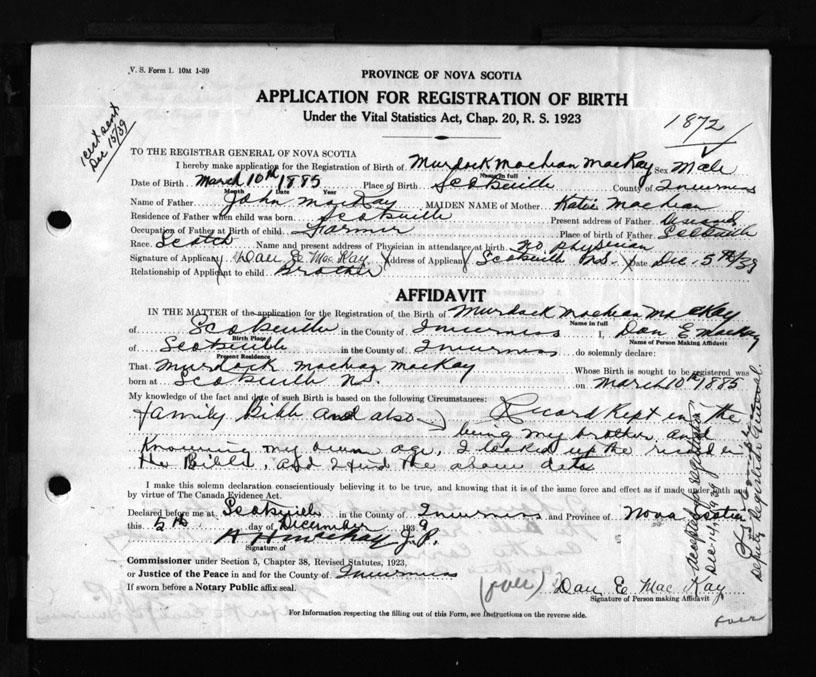 V. S. Form 1. 10M 1-39
PROVINCE OF NOVA SCOTIA
APPLICATION FOR REGISTRATION OF BIRTH
Under the Vital Statistics Act, Chap. 20, R. S. 1923
1872
1 cert sent
Dec 15/39
TO THE REGISTRAR GENERAL OF NOVA SCOTIA
I hereby make application for the Registration of Birth of Murdock maclean macKay Sex Male
Name in full
Date of Birth March 10th 1885 Place of Birth Scotsville County of Inverness
Month Date Year
Name of Father John MacKay MAIDEN NAME of Mother Katie Maclean
Residence of Father when child was born Scotsville Present address of Father
Occupation of Father at Birth of child Farmer Place of birth of Father Scotsville
Race. Scotch Name and present address of Physician in attendance at birth. no physician
Signature of Applicant Dan E Mac Kay Address of Applicant Scotsville N.S. Date Dec. 5th/39
Relationship of Applicant to child Brother
AFFIDAVIT
IN THE MATTER of the application for the Registration of the Birth of Murdock Maclean MacKay
Name in full
of Scotsville in the County of Inverness I, Dan E Mackay
Birth Place Name of Person Making Affidavit
of Scotsville in the County of Inverness do solemnly declare:
Present Residence
That Murdock macKay Whose Birth is sought to be registered was
born at Scotsville N.S. on March 10th 1885
My knowledge of the fact and date of such Birth is based on the following Circumstances:
family Bible and also Record Kept in the
being my brother, and
Knowing my own age, I looked up the record in
the Bible, and I find the above date
I make this solemn declaration conscientiously believing it to be true, and knowing that it is of the same force and effect as if made under oath and
by virtue of The Canada Evidence Act.
Declared before me at Scotsville in the County of Inverness and Province of Nova Scotia
this 5th day of December 1939
MacKay J.P.
Signature of
Commissioner under Section 5, Chapter 38, Revised Statutes, 1923,
or Justice of the Peace in and for the County of Inverness
If sworn before a Notary Public affix seal.
(over) Dan E Mac Kay
Signature of Person making Affidavit
For Information respecting the filling out of this Form, see Instructions on the reverse side.
over
Accepted for registration
Dec. 14, 1939
Deputy Registrar General.